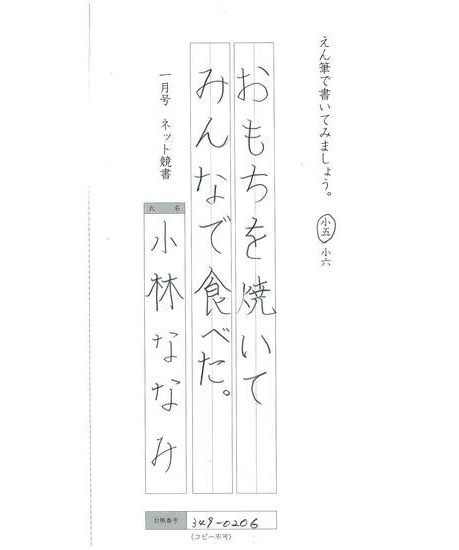 えん筆で書いてみましょう。
小五・小六
おもちを焼いて
みんなで食べた。
一月号 ネット競書
氏名
小林ななみ
台帳番号 349-0206
(コピー不可)